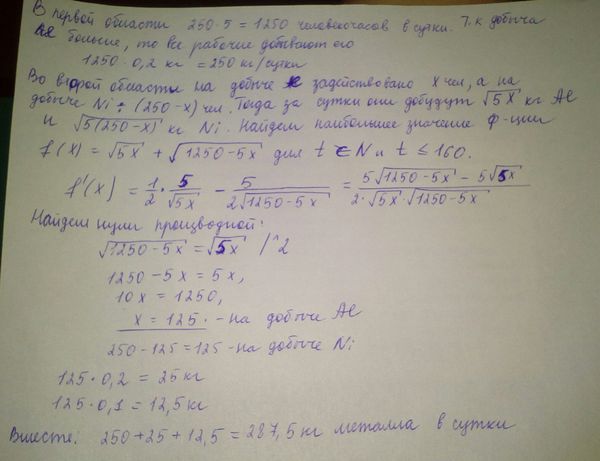 В первой области 250·5 = 1250 человекочасов в сутки. Т.к добыча
больше, то все рабочие добывают его
1250·0,2 кг = 250 кг/сутки
Во второй области на добыче задействовано x чел, а на
добыче Ni : (250-x) чел. Тогда за сутки они добудут √5x кг Al
и √5(250-x) кг Ni. Найдем наибольшее значение ф-ции
f(x) = √5x + √1250-5x для t ∈ N и t ≤ 160.
f'(x) = 1/2 · 5/√5x - 5/2√1250-5x = 5√1250-5x - 5√5x / 2·√5x·√1250-5x
Найдем нули производной:
√1250-5x = √5x /^2
1250-5x = 5x,
10x = 1250,
x = 125. - на добыче Al
250-125=125 - на добыче Ni
125·0,2 = 25 кг
125·0,1 = 12,5 кг
Вместе: 250+25+12,5 = 287,5 кг металла в сутки